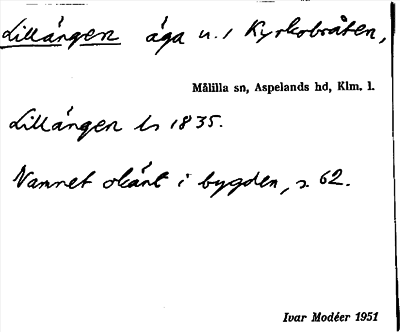 Lillängen äga u. / Kyrkobråten,
Målilla sn, Aspelands hd, Klm. l.
Lillängen ls 1835.
Namnet okänt i bygden, s. 62.
Ivar Modéer 1951